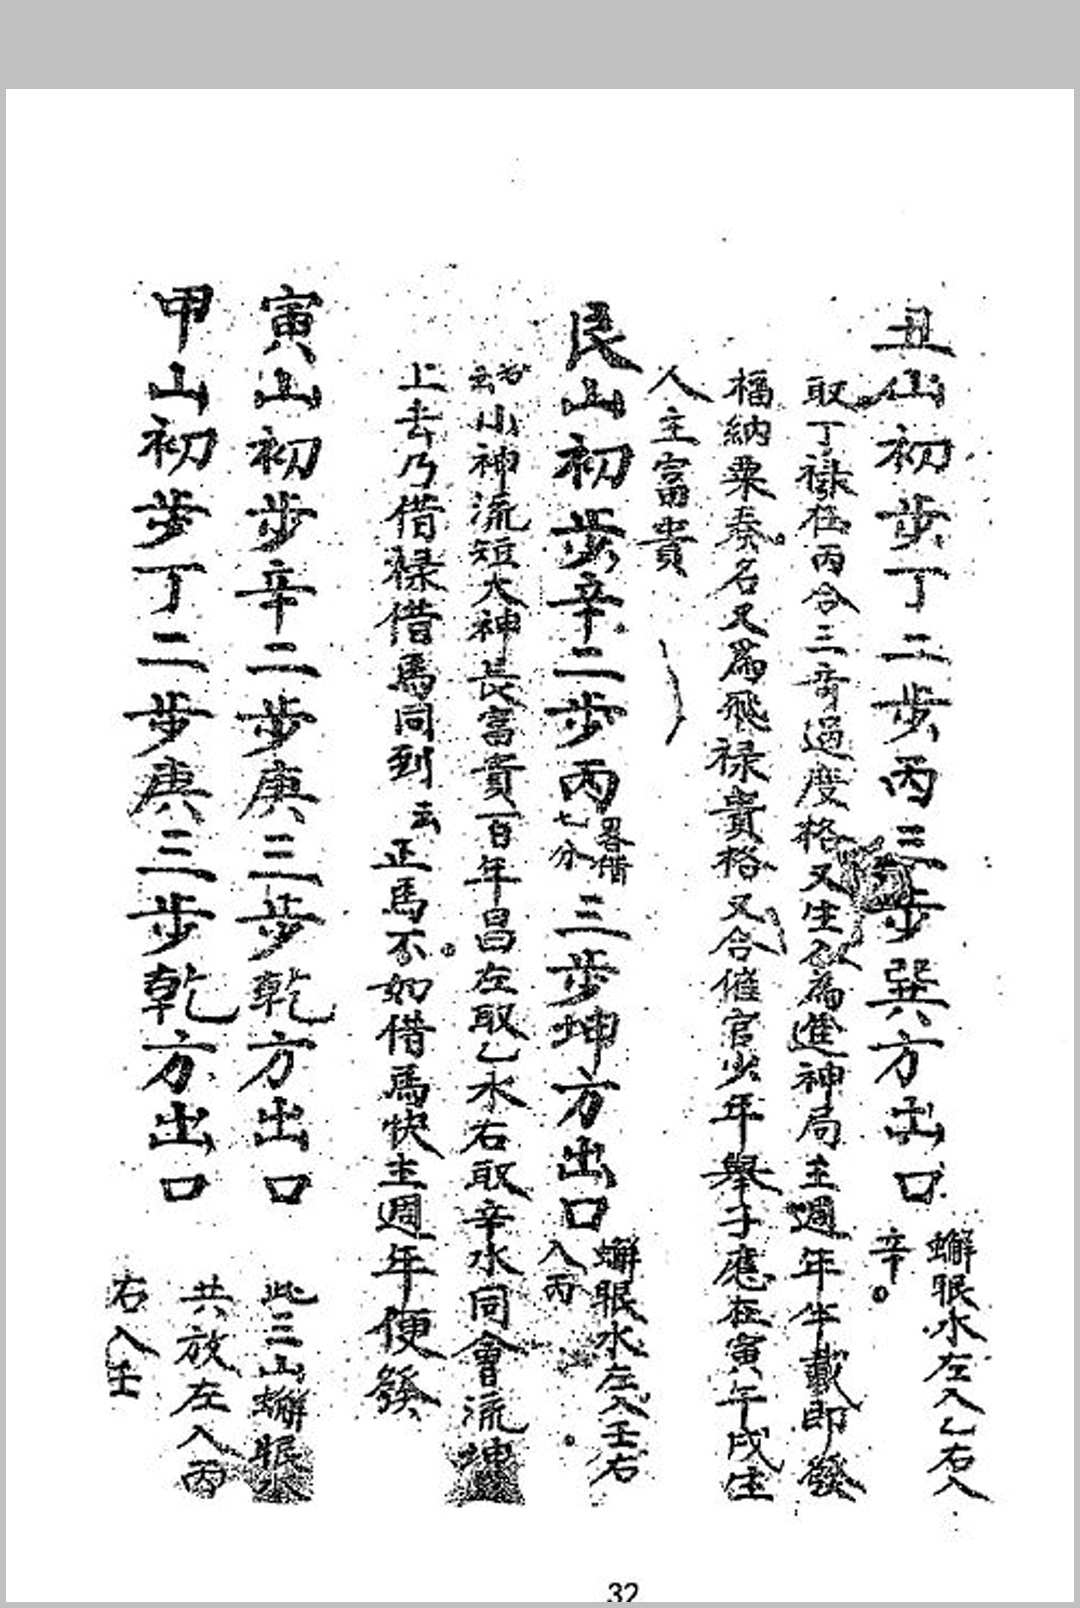 丑山初步丁二步丙三步巽方出口
蠏眼水左入乙右入
辛。
取丁祿在丙合三奇過度格又生似為進神局主週年半載即發
福納粟奏名又為飛祿貴格又合催官少年舉子應在寅午戌生
人主富貴
艮山初步辛二步丙
畧借
七分
三步坤方出口
蠏眼水左入壬右
入丙
小神流短大神長富貴百年昌左取乙水右取辛水同會流坤
上去乃借祿借馬同到云正馬不如借馬快主週年便發
寅山初步辛二步庚三步乾方出口
甲山初步丁二步庚三步乾方出口
此三山蠏眼水
共放左入丙
右入壬
32